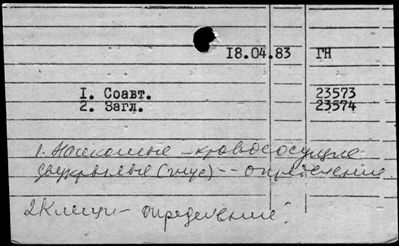 18.04.83 ГН
1. Соавт. 23573
2. Загл. 23574
1. Насекомые - кровососущие
двукрылые (гнус) -- определение
2 Клещи - определение.